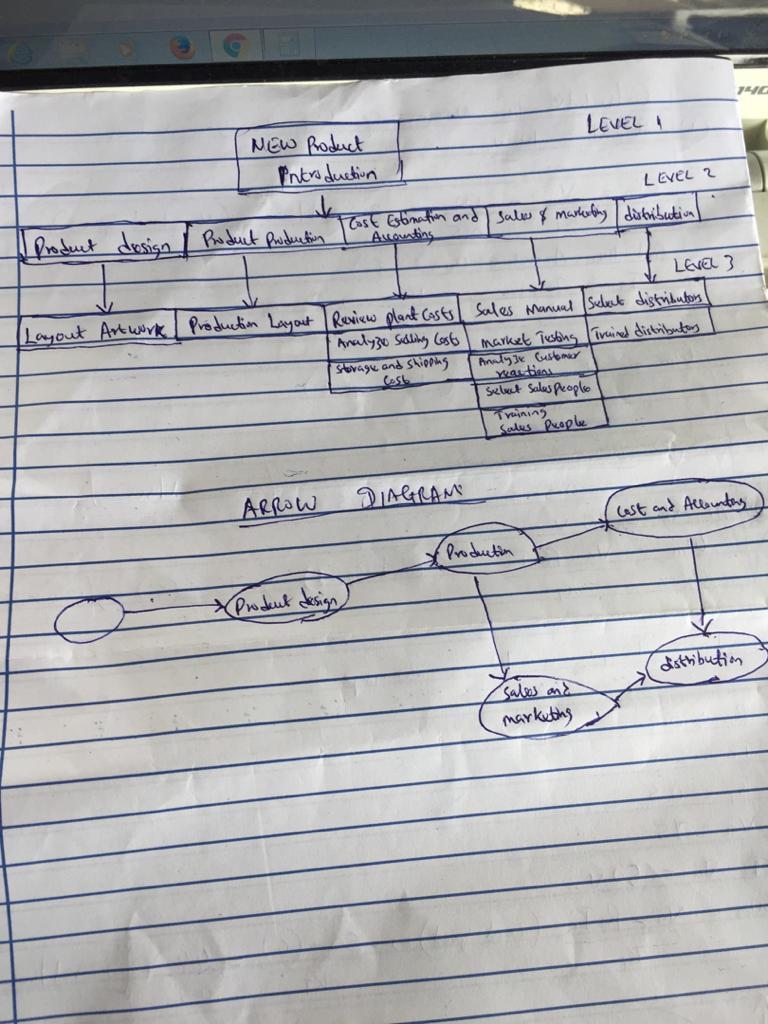 140
LEVEL 1
NEW Product
Introduction
LEVEL 2
Product design
Product Production
Cost Estimation and
Accounting
Sales & marketing
distribution
LEVEL 3
Layout Artwork
Production Layout
Review plant Costs
Analyze Selling Costs
Storage and shipping
Cost
Sales Manual
Market Testing
Analyze Customer
reactions
Select Sales People
Training
Sales People
Select distributors
Trained distributors
ARROW DIAGRAM
Cost and Accounting
Production
Product design
distribution
Sales and
marketing